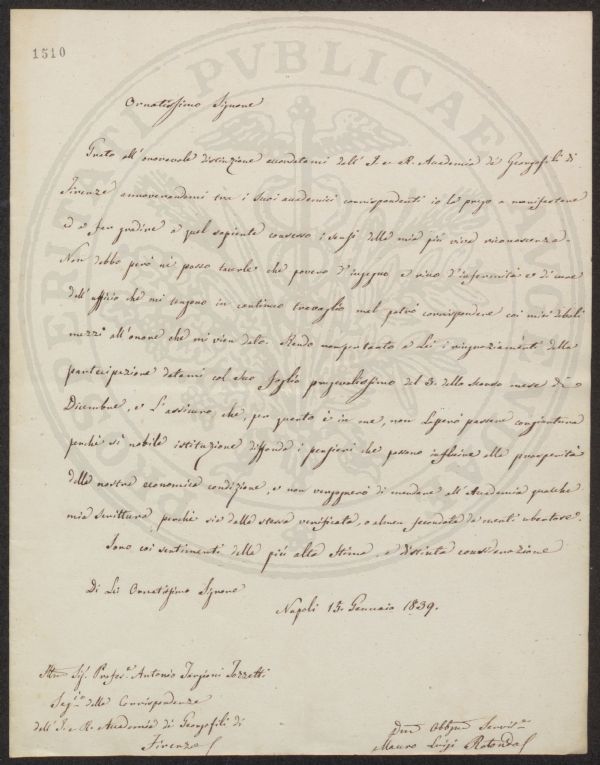 1510
PROSPERITATI PVBLICAE
Ornatissimo Signore
Grato all'onorevole distinzione accordatami dall'I. e R. Accademia de' Georgofili di
Firenze annoverandomi tra i suoi accademici corrispondenti io la prego a manifestare
ed a far gradire a quel sapiente consesso i sensi della mia più viva riconoscenza.
Non debbo però nè posso tacerle che povero d'ingegno e ricco d'infermità e di cure
dell'uffizio che mi tengono in continuo travaglio mal potrò corrispondere coi miei deboli
mezzi all'onore che mi vien dato. Rendo nonpertanto a Lei i ringraziamenti della
partecipazione datami col suo foglio pregevolissimo del 3. dello scorso mese di
Dicembre, e l'assicuro, che, per quanto è in me, non lascerò passare congiuntura
perchè sì nobile istituzione diffonda i pensieri che possono influire alla prosperità
della nostra economica condizione, e non vergognerò di mandare all'Accademia qualche
mia scrittura perchè sia dalla stessa verificata, o almen fecondata da menti ubertose.
Sono coi sentimenti della più alta stima, e distinta considerazione
Di Lei Ornatissimo Signore
Napoli 15. Gennaio 1839.
Sig. Profes.r Antonio Targioni Tozzetti
Seg.io delle Corrispondenze
dell'I. e R. Accademia de' Georgofili di
Firenze
Obblgmo Servit.e
Mauro Luigi Rotondo